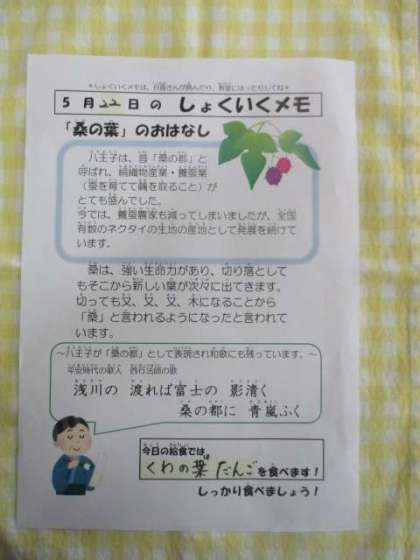 ＊しょくいくメモは、日直さんが読んだり、教室にはったりしてね＊
5月22日の しょくいくメモ
「桑の葉」のおはなし
八王子は、昔「桑の都」と
呼ばれ、絹織物産業・養蚕業
（蚕を育てて繭を取ること）が
とても盛んでした。
今では、養蚕農家も減ってしまいましたが、全国
有数のネクタイの生地の産地として発展を続けて
います。
桑は、強い生命力があり、切り落として
もそこから新しい葉が次々に出てきます。
切っても又、又、又、木になることから
「桑」と言われるようになったと言われて
います。
～八王子が「桑の都」として表現され和歌にも残っています。～
平安時代の歌人 西行法師の歌
浅川の 渡れば富士の 影清く
桑の都に 青嵐ふく
今日の給食では
くわの葉だんごを食べます！
しっかり食べましょう！